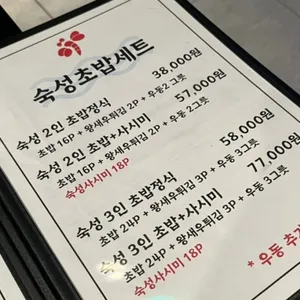 숙성초밥세트
숙성 2인 초밥정식 38,000원
초밥 16P + 왕새우튀김 2P + 우동2그릇
숙성 2인 초밥+사시미 57,000원
초밥 16P + 왕새우튀김 2P + 우동 2그릇
숙성사시미 18P
숙성 3인 초밥정식 58,000원
초밥 24P + 왕새우튀김 3P + 우동 3그릇
숙성 3인 초밥+사시미 77,000원
초밥 24P + 왕새우튀김 3P + 우동 3그릇
숙성사시미 18P
* 우동 추가